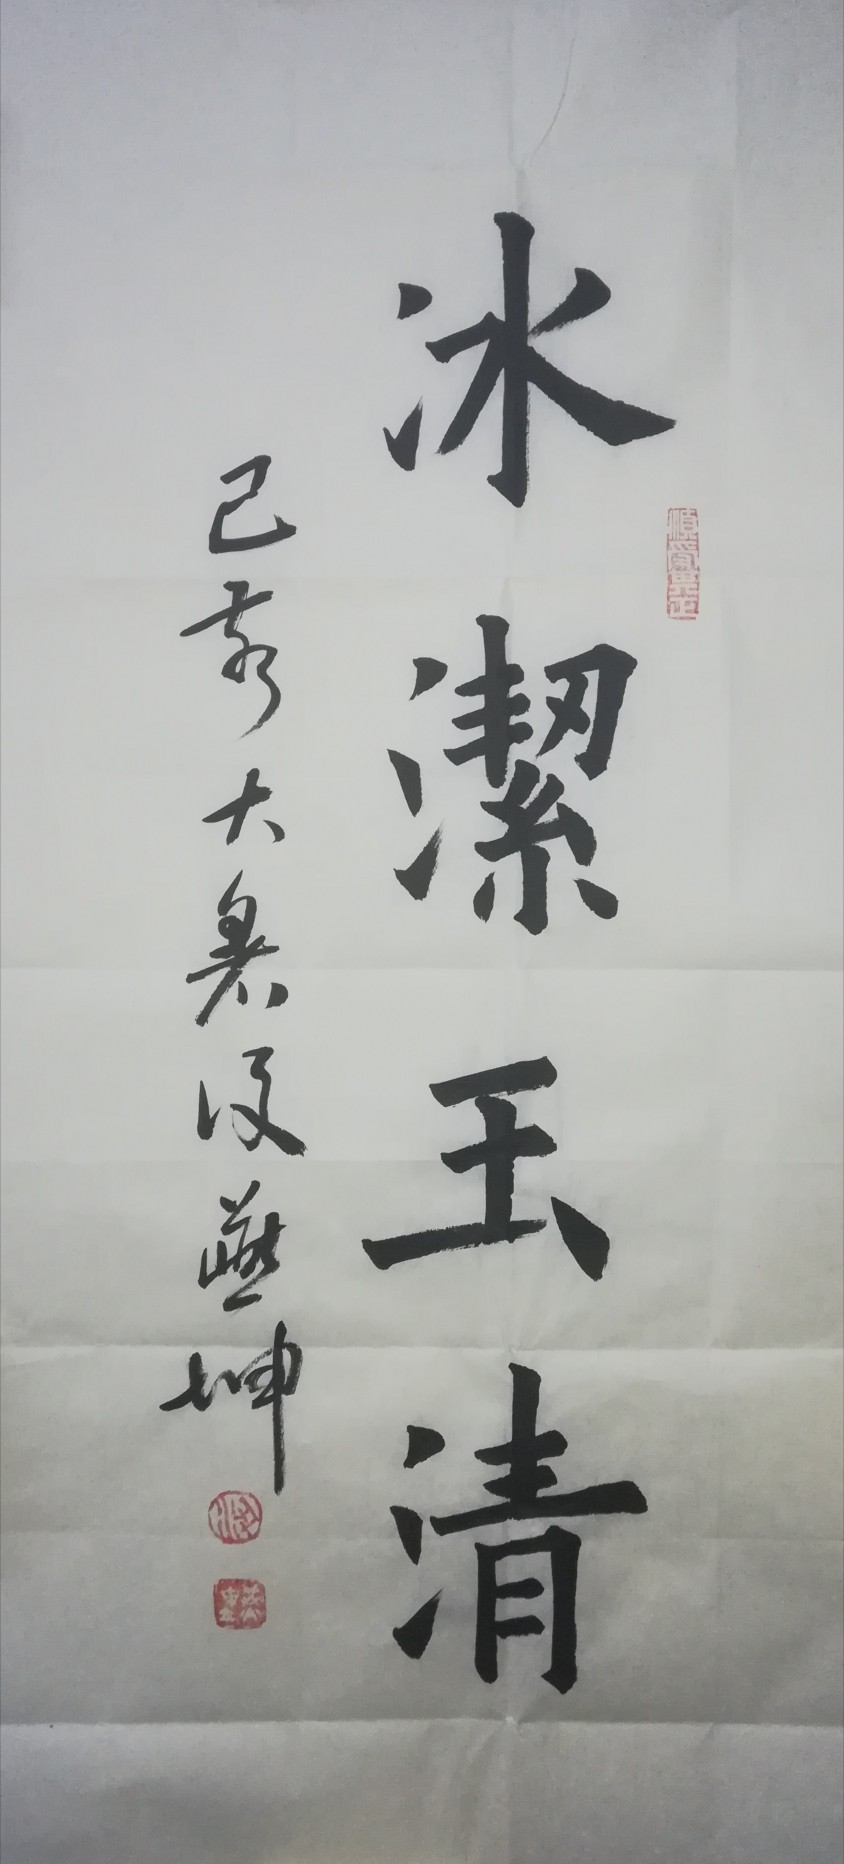 冰潔玉清
己亥大暑後燕坤